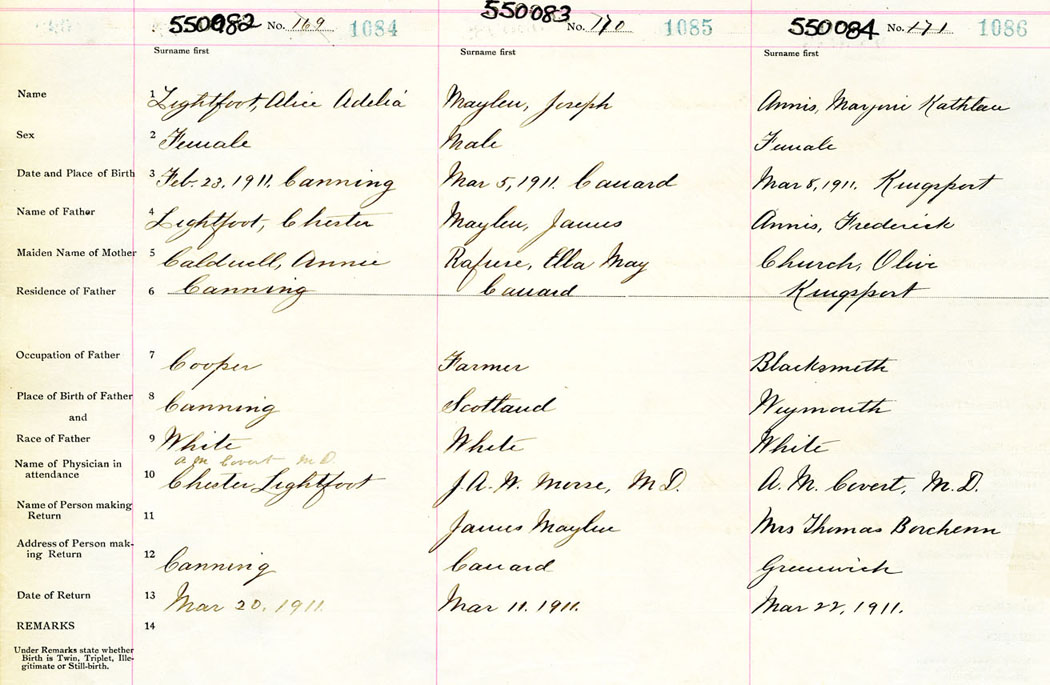 550082 No. 169 1084 550083 No. 170 1085 550084 No. 171 1086
Surname first Surname first Surname first
Name 1 Lightfoot, Alice Adelia Maylen, Joseph Annis, Marjorie Kathleen
Sex 2 Female Male Female
Date and Place of Birth 3 Feb. 23, 1911. Canning Mar 5, 1911. Canard Mar 8, 1911. Kingsport
Name of Father 4 Lightfoot, Chester Maylen, James Annis, Frederick
Maiden Name of Mother 5 Caldwell, Annie Rafuse, Ella May Church, Olive
Residence of Father 6 Canning Canard Kingsport
Occupation of Father 7 Cooper Farmer Blacksmith
Place of Birth of Father 8 Canning Scotland Weymouth
and
Race of Father 9 White White White
A M Covert M D.
Name of Physician in
attendance 10 Chester Lightfoot J. A. W. Morse, M D. A. M. Covert, M. D.
Name of Person making
Return 11 James Maylen Mrs Thomas
Address of Person mak-
ing Return 12 Canning Canard Greenwich
Date of Return 13 Mar 20, 1911. Mar 11. 1911. Mar 22, 1911.
REMARKS 14
Under Remarks state whether
Birth is Twin, Triplet, Ille-
gitimate or Still-birth.